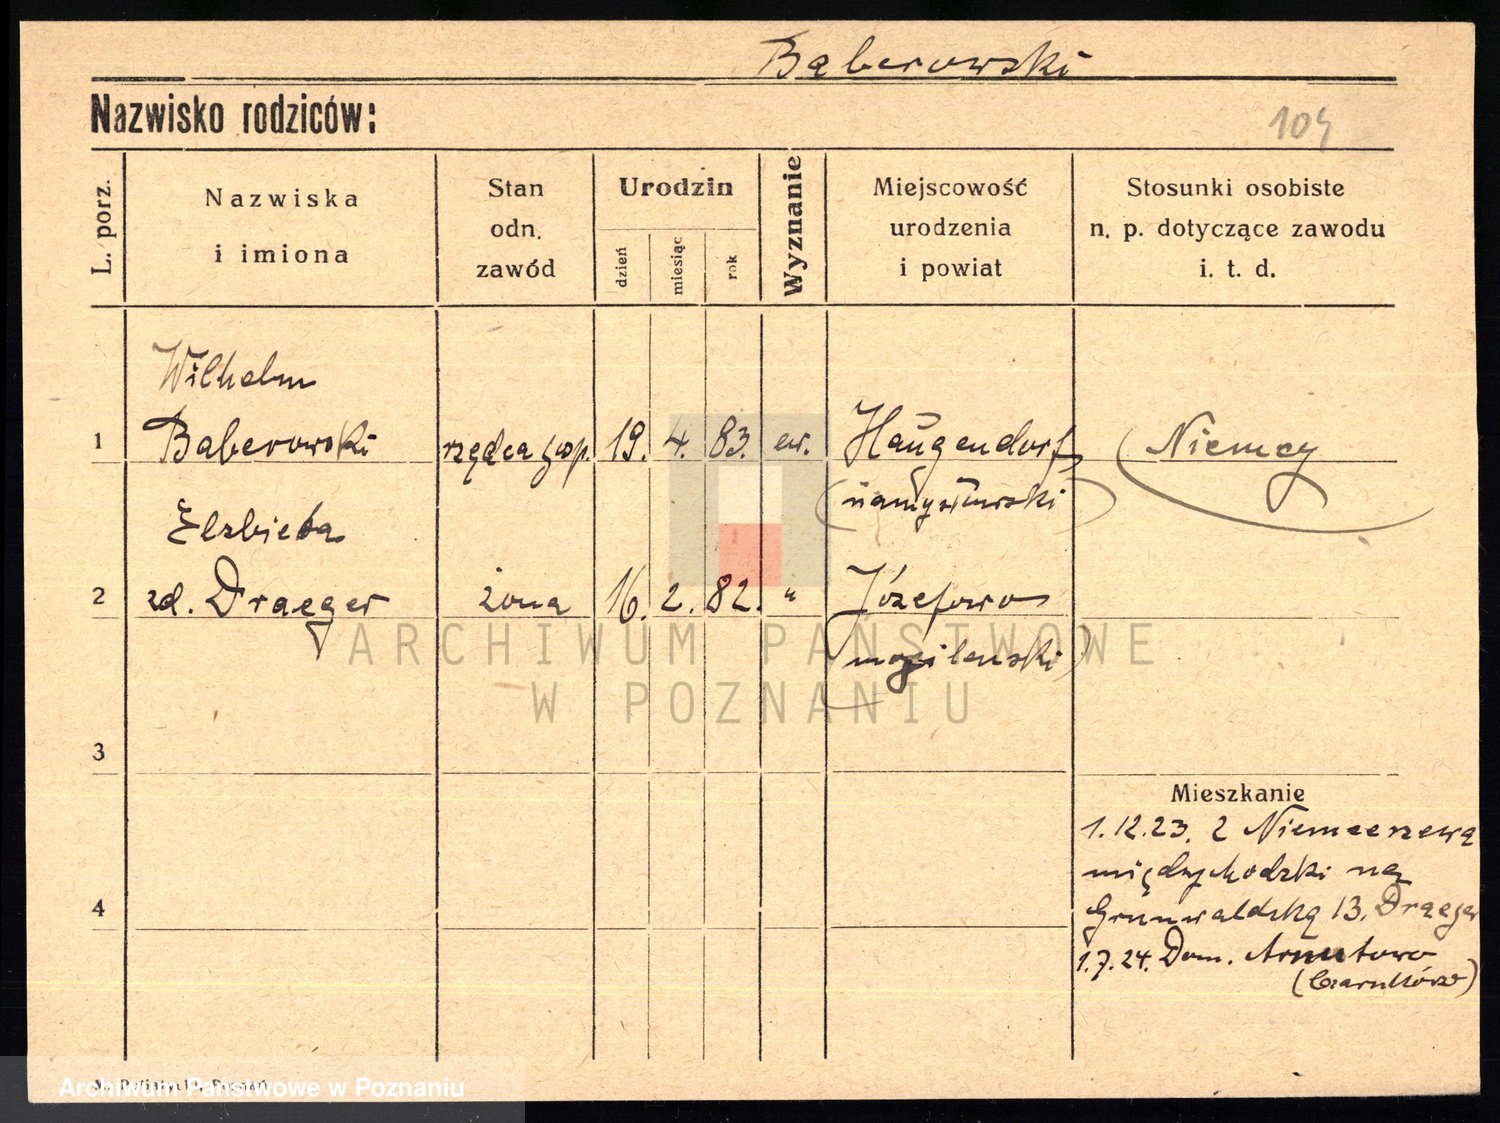 Bąberowski
Nazwisko rodziców:
104
L. porz.
Nazwiska
i imiona
Stan
odn.
zawód
Urodzin
dzień
miesiąc
rok
Wyznanie
Miejscowość
urodzenia
i powiat
Stosunki osobiste
n. p. dotyczące zawodu
i. t. d.
Wilhelm
1 Bąberowski rządca gosp. 19. 4. 83. ew. Haugendorf (Niemcy)
(namysłowski)
Elzbieta
2 zd. Draeger żona 16. 2. 82. " Józefowo
(mogilenski)
3
Mieszkanie
1.12.23. z
międzychodzki na
4
Grunwaldzką 13. Draeger
1.7.24. Dom.
ARCHIWUM PAŃSTWOWE
W POZNANIU
Archiwum Państwowe w Poznaniu